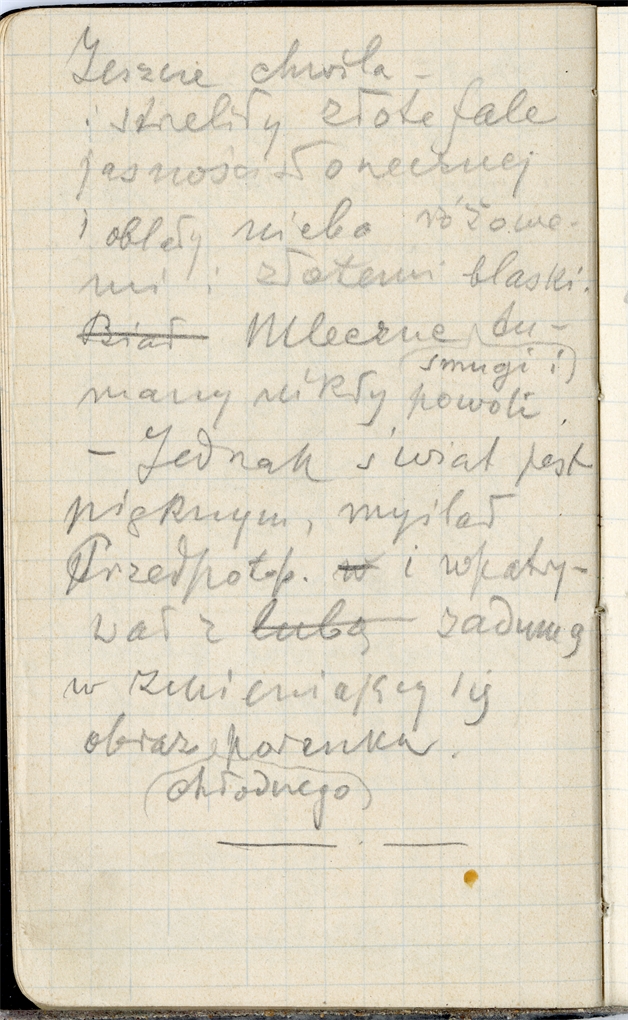 Jeszcze chwila –
i strzeliły złote fale
jasności słonecznej
i oblały niebo różowe-
mi i złotemi blaski.
Biał Mleczne tu-
smugi i
many nikły powoli.
– Jednak świat jest
pięknym, myślał
Przedpotop. w i wpatry-
wał z lubą zadumą
w zmieniający się
obraz poranku.
chłodnego